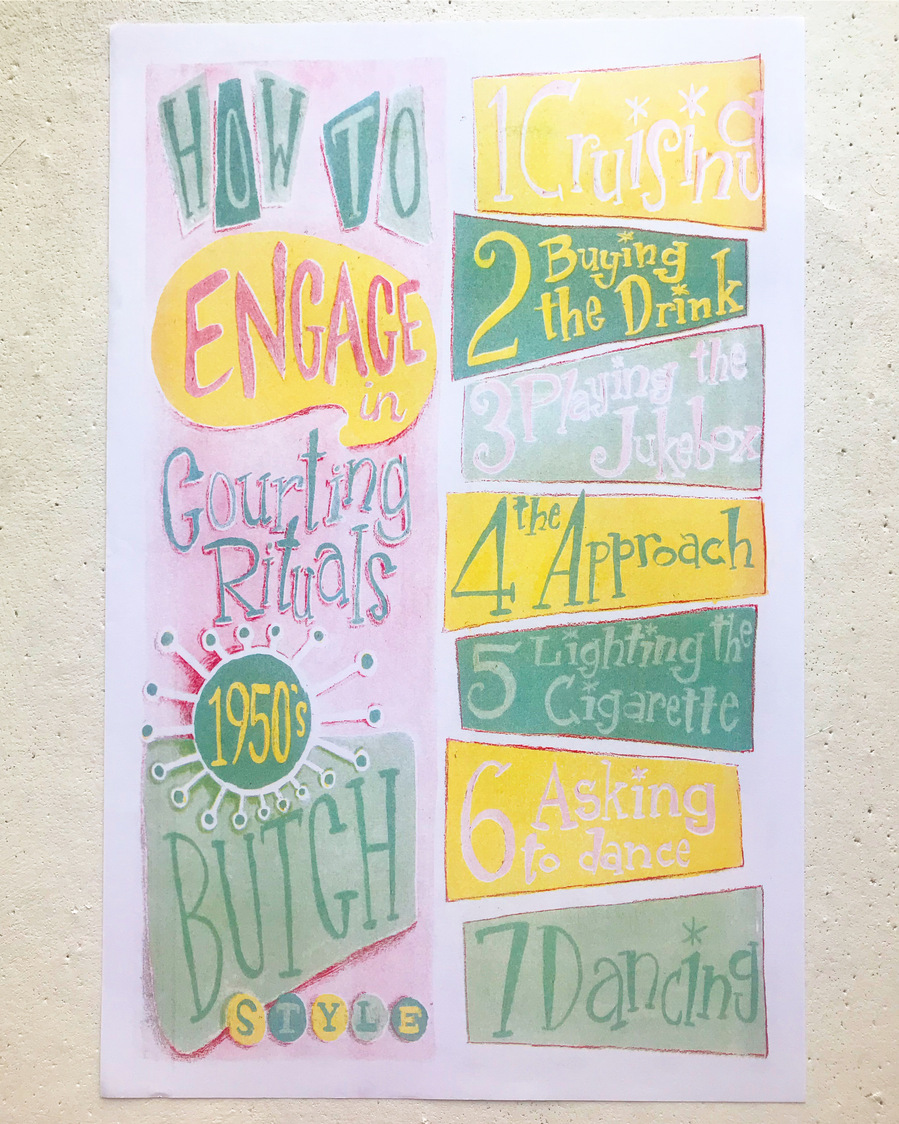 HOW TO
ENGAGE
in
Courting
Rituals
1950's
BUTCH
STYLE
1 Cruising
2 Buying
the Drink
3 Playing the
Jukebox
4 the Approach
5 Lighting the
Cigarette
6 Asking
to dance
7 Dancing